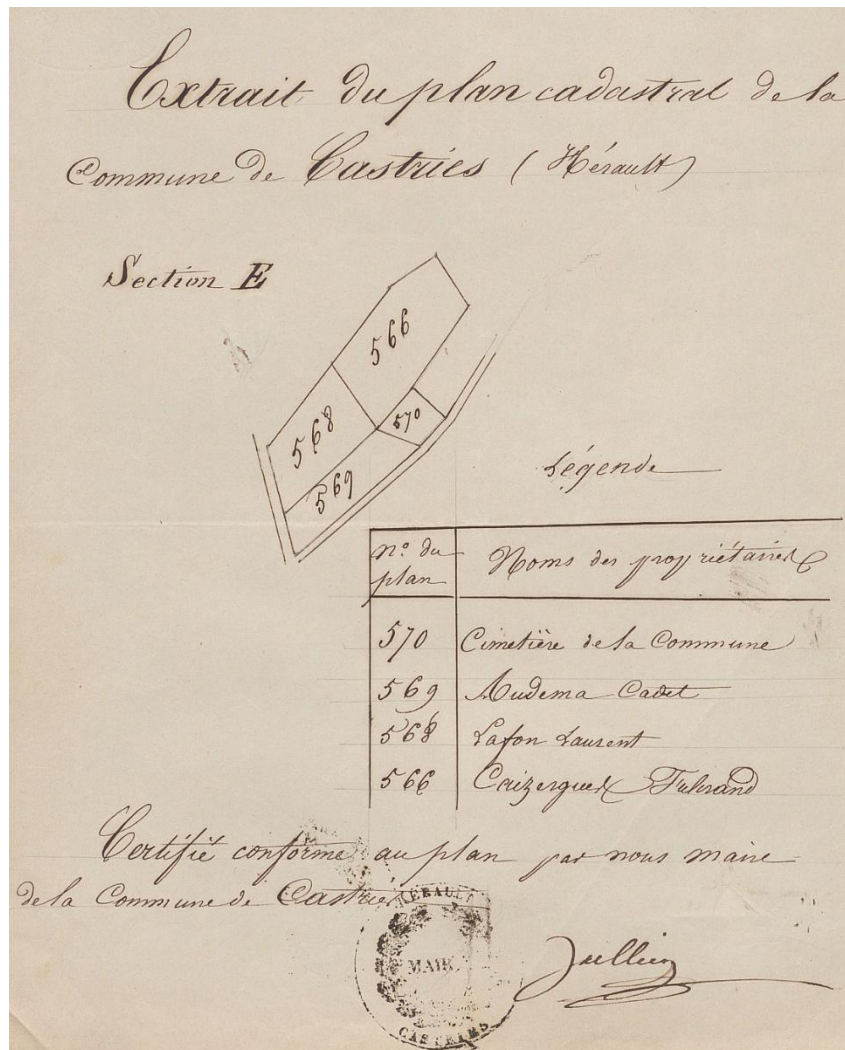 Extrait du plan cadastral de la
Commune de Castries (Hérault)
Section E
566
568
570
569
Légende
n° du plan
Noms des propriétaires
570 Cimetière de la Commune
569 Audema Cadet
568 Lafon Laurent
566 Caizergues
Certifié conforme au plan par nous maire
de la Commune de Castries
HÉRAULT
MAIRIE
CASTRIES
Jullien